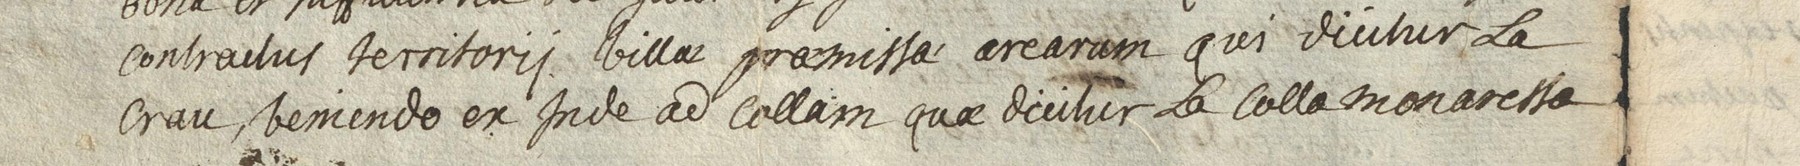 contractus territorij villæ præmissæ arearum qui dicitur La
Crau, veniendo ex inde ad Collam quæ dicitur La Colla monaressa